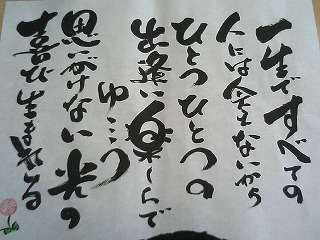 一生ですべての
人には会えないから
ひとつひとつの
出逢い楽しんで
ゆこう
思いがけない光の
喜び生まれる